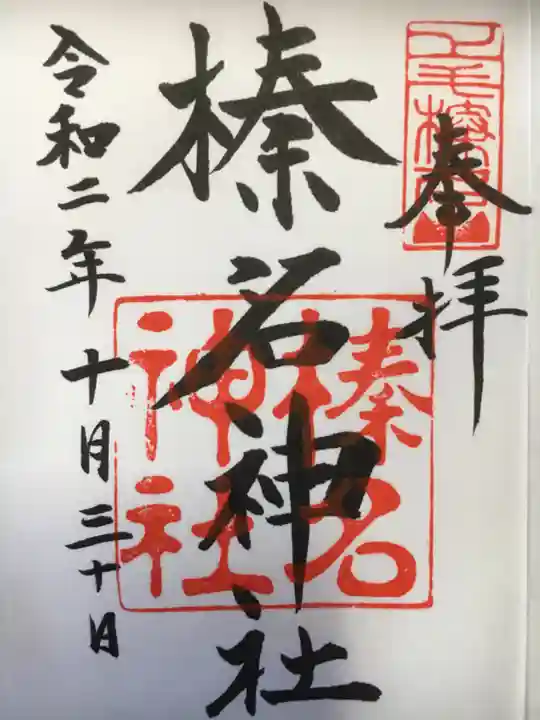 奉拝
榛名神社
令和二年十月三十日
榛名
神社